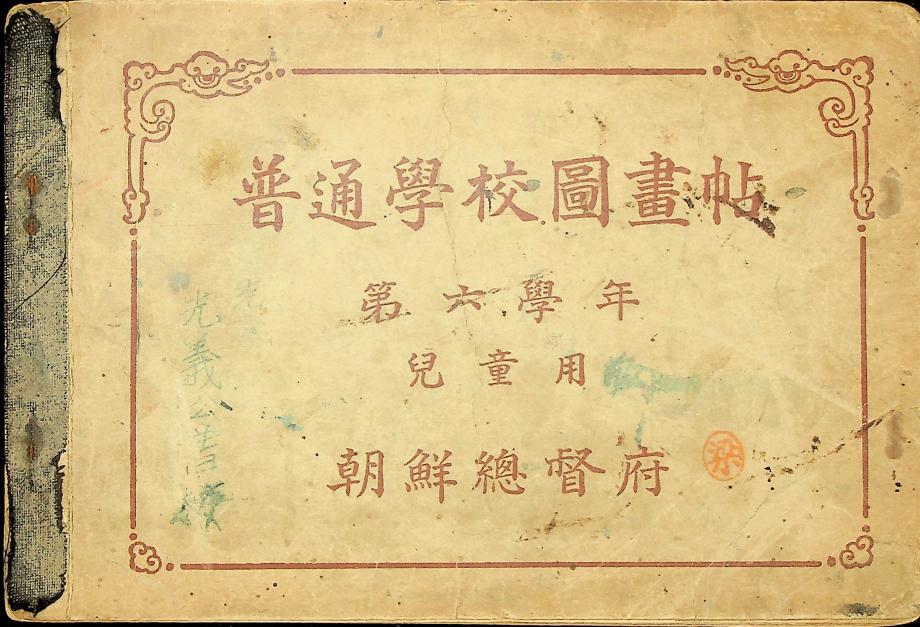 普通學校圖畫帖
第六學年
兒童用
朝鮮總督府
梁
光義公普